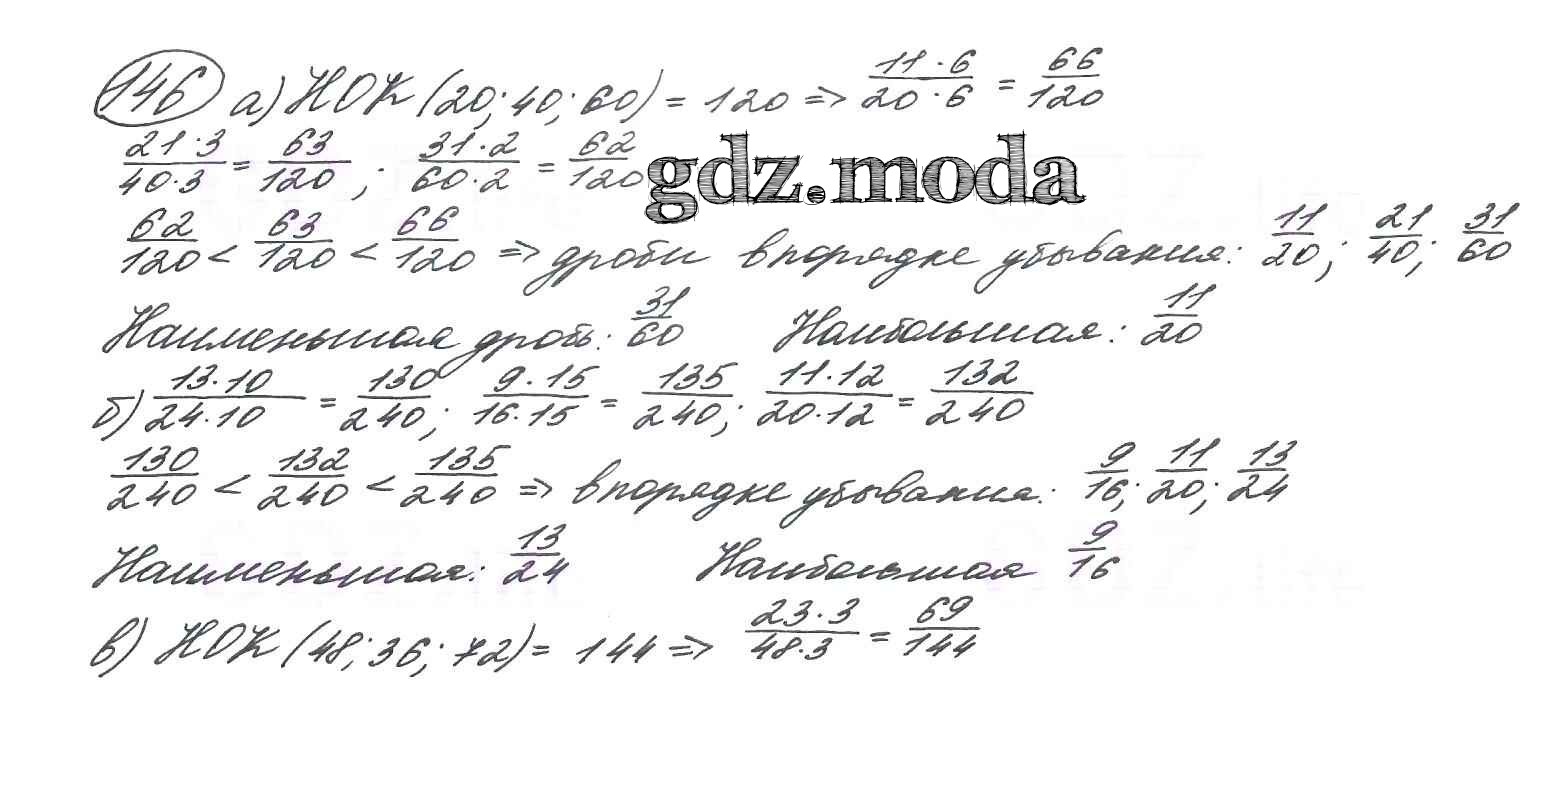 146 а) НОК (20; 40; 60) = 120 => 11·6/20·6 = 66/120
21·3/40·3 = 63/120; 31·2/60·2 = 62/120 gdz.moda
62/120 < 63/120 < 66/120 => дроби в порядке убывания: 11/20; 21/40; 31/60
Наименьшая дробь: 31/60 Наибольшая: 11/20
б) 13·10/24·10 = 130/240; 9·15/16·15 = 135/240; 11·12/20·12 = 132/240
130/240 < 132/240 < 135/240 => в порядке убывания: 9/16; 11/20; 13/24
Наименьшая: 13/24 Наибольшая 9/16
в) НОК (48; 36; 72) = 144 => 23·3/48·3 = 69/144